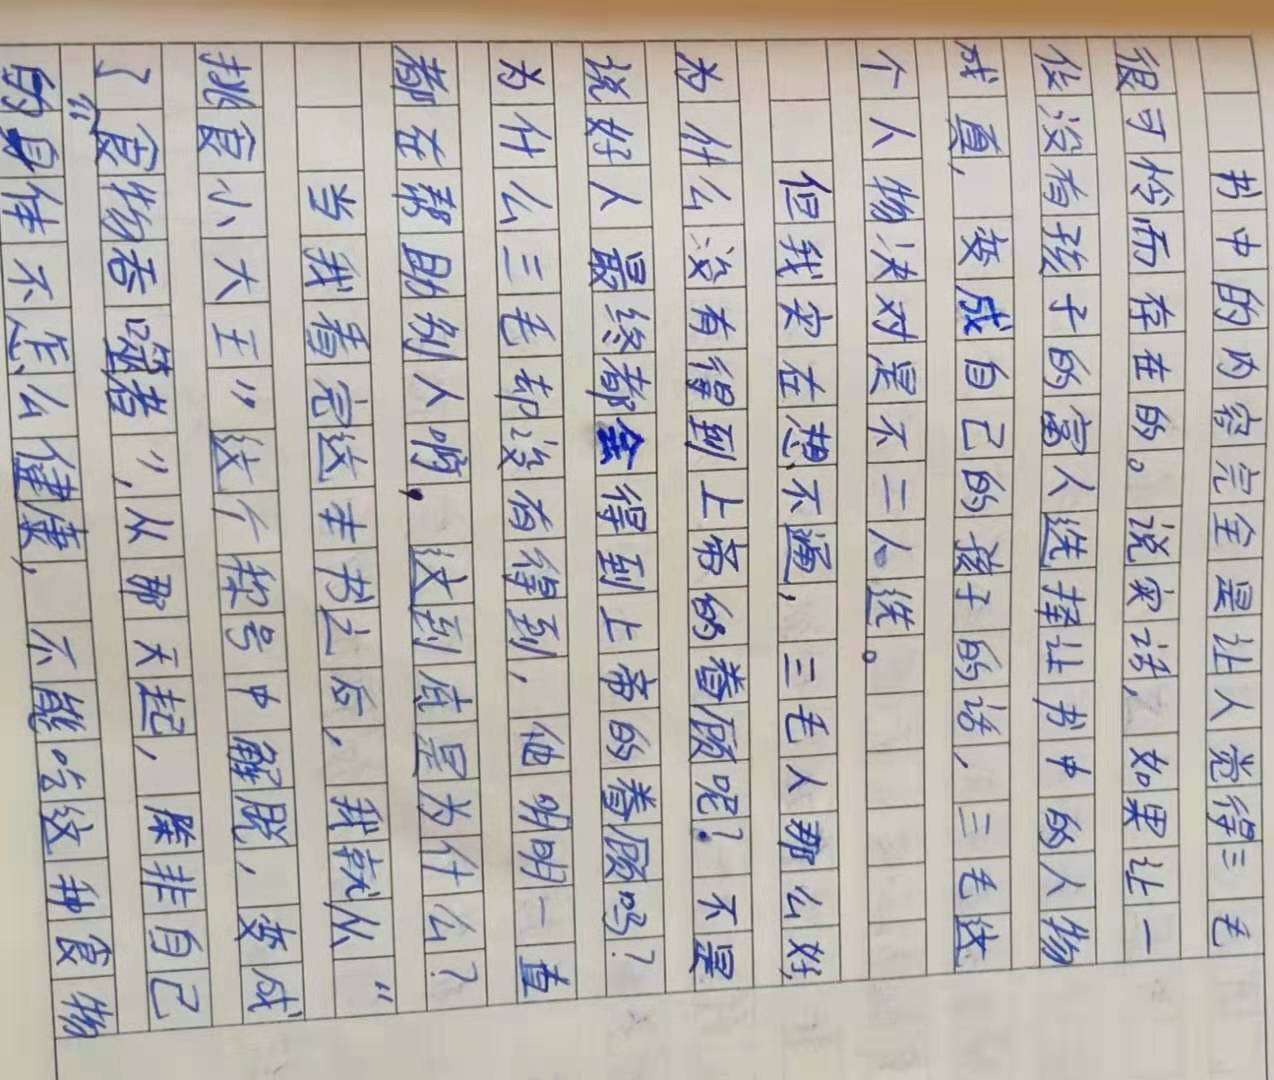 书中的内容完全是让人觉得三毛
很可怜而存在的。说实话，如果让一
位没有孩子的富人选择让书中的人物
成真，变成自己的孩子的话，三毛这
个人物决对是不二人选。
但我实在想不通，三毛人那么好，
为什么没有得到上帝的眷顾呢？不是
说好人最终都会得到上帝的眷顾吗？
为什么三毛却没有得到，他明明一直
都在帮助别人的，这到底是为什么？
当我看完这本书之后，我就从“
挑食小大王”这个称号中解脱，变成
了“食物吞噬者”，从那天起，除非自己
的身体不怎么健康，不能吃这种食物